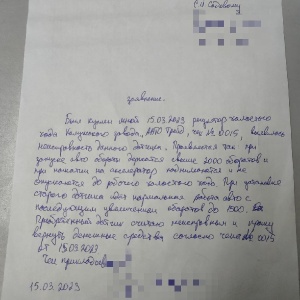 заявление.
Был куплен мной 15.03.2023 регулятор холостого
хода Калужского завода, АВТО Трейд, чек № 0015, выявилась
неисправность данного датчика. Проявляется так при
запуске авто обороты держатся свыше 2000 оборотов и
при нажатии на акселератор поднимаются и не
опускаются до рабочего холостого хода. При установке
старого датчика идет нормальная работа авто с
последующим увеличением оборотов до 1500.
Приобретенный датчик считаю неисправным и прошу
вернуть денежные средства согласно чека № 0015
от 15.03.2023
Чек прикладываю
15.03.2023